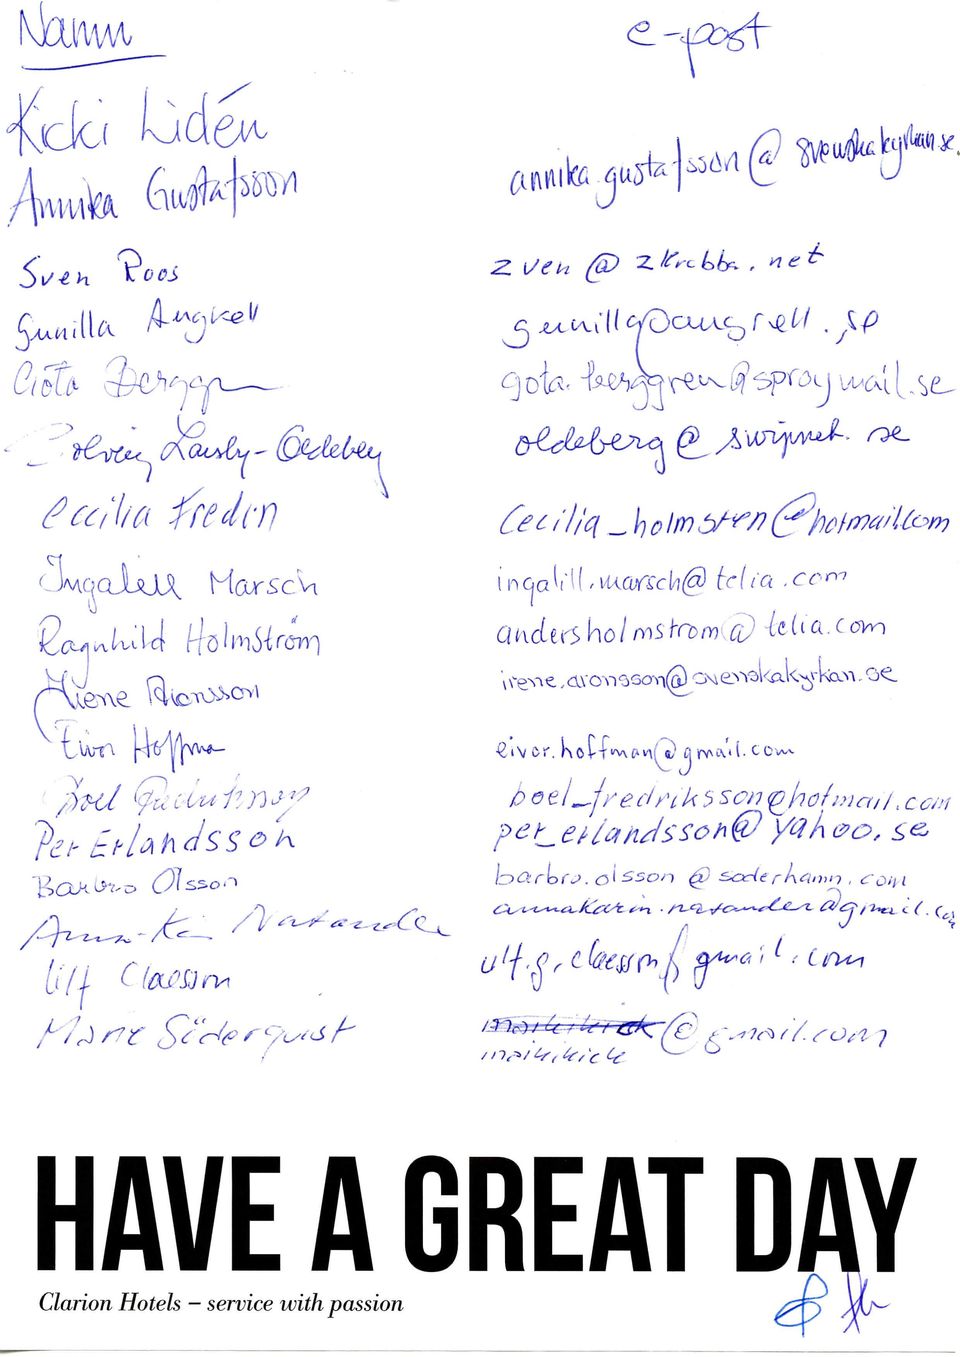 Namn e-post
Kicki Lidén
Annika Gustafsson annika.gustafsson@svenskakyrkan.se.
Sven Roos zven@zkrabba.net
Gunilla Angrell gunilla@angrell.se
Göta Berggren gota.berggren@spraymail.se
Solveig oldeberg@swipnet.se
Cecilia Fredin Cecilia_holmsten@hotmail.com
Ingalill Marsch ingalill.marsch@telia.com
Ragnhild Holmström andersholmstrom@telia.com
Irene Aronsson irene.aronsson@svenskakyrkan.se
Eivor Hoffman eivor.hoffman@gmail.com
Boel Fredriksson boel_fredriksson@hotmail.com
Per Erlandsson per_erlandsson@yahoo.se
Barbro Olsson barbro.olsson@soderhamn.com
Anna-Karin Natander annakarin.natander@gmail.com
Ulf Claesson ulf.g.claesson@gmail.com
Marie Söderquist @gmail.com
HAVE A GREAT DAY
Clarion Hotels – service with passion